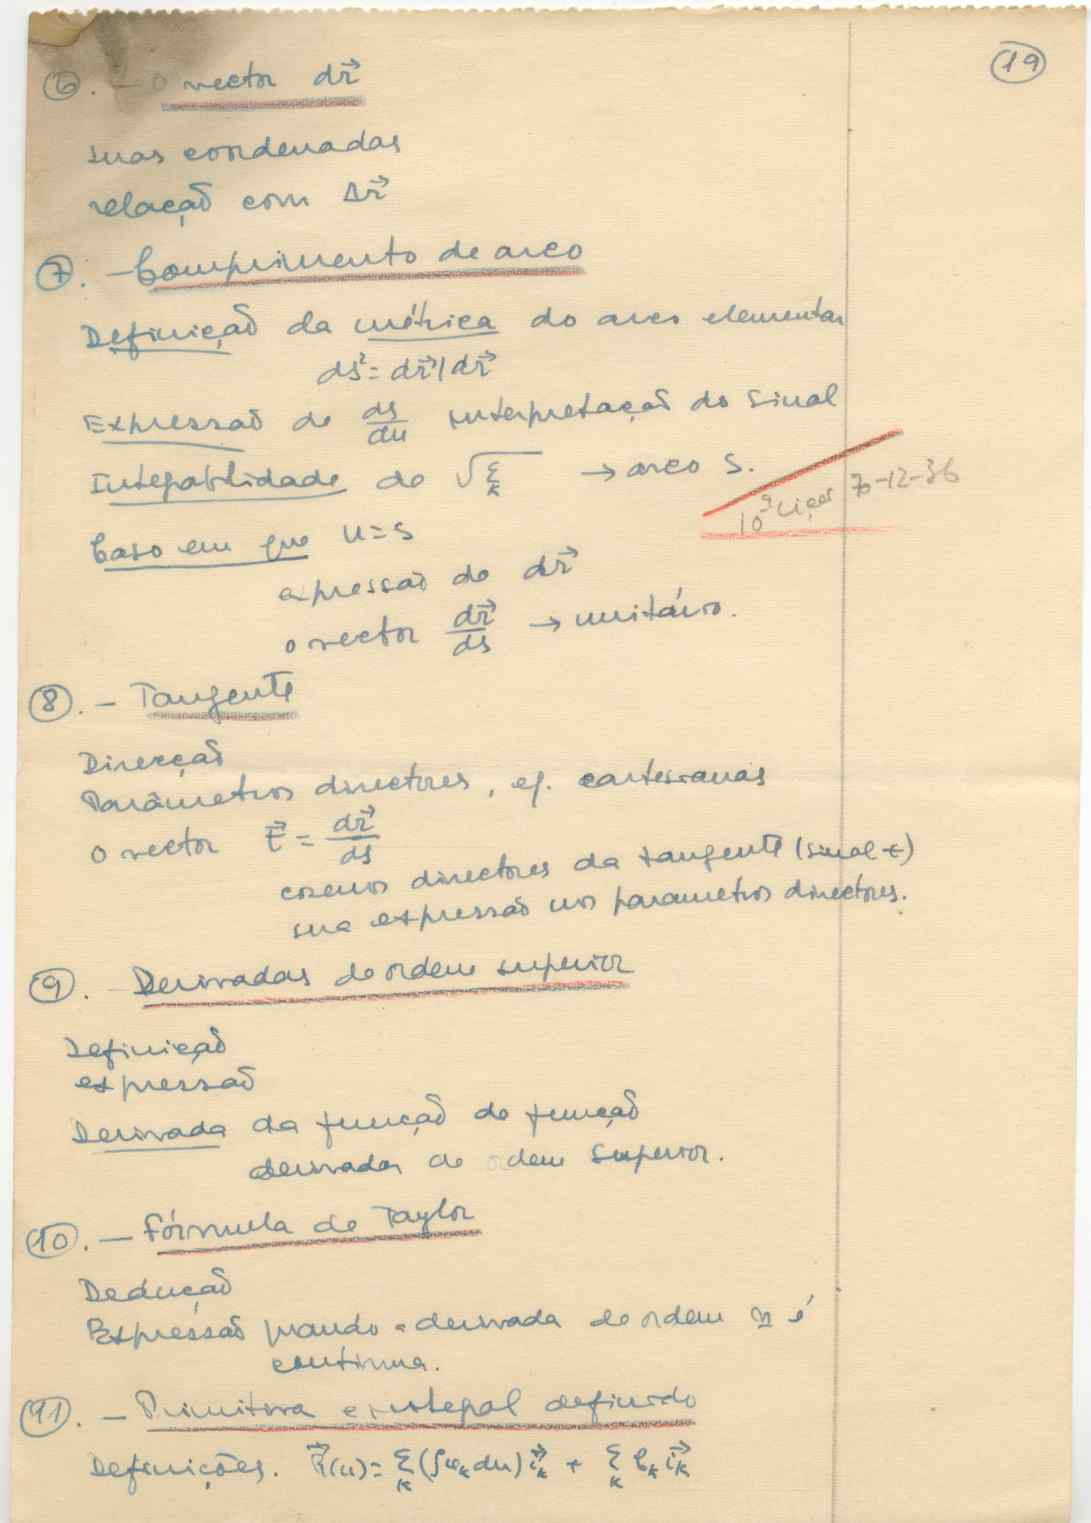 19
6. - O vector dr⃗
suas coordenadas
relação com Δr⃗
7. - Comprimento de arco
Definição da métrica do arco elementar
ds² = dr⃗ | dr⃗
Expressão de ds/du interpretação do sinal
Integrabilidade de √Σ_k → arco s.
10ª Lição -12-36
Caso em que u = s
expressão de dr⃗
o vector dr⃗/ds → unitário.
8. - Tangente
Direcção
Parâmetros directores, eq. cartesianas
o vector t⃗ = dr⃗/ds
cosenos directores da tangente (sinal +)
sua expressão nos parametros directores.
9. - Derivadas de ordem superior
Definição
expressão
Derivada da função de função
derivadas de ordem superior.
10. - Fórmula de Taylor
Dedução
Expressão quando a derivada de ordem n é
contínua.
11. - Primitiva e integral definido
Definições. R⃗(u) = Σ_k (∫u_k du) i⃗_k + Σ_k C_k i⃗_k